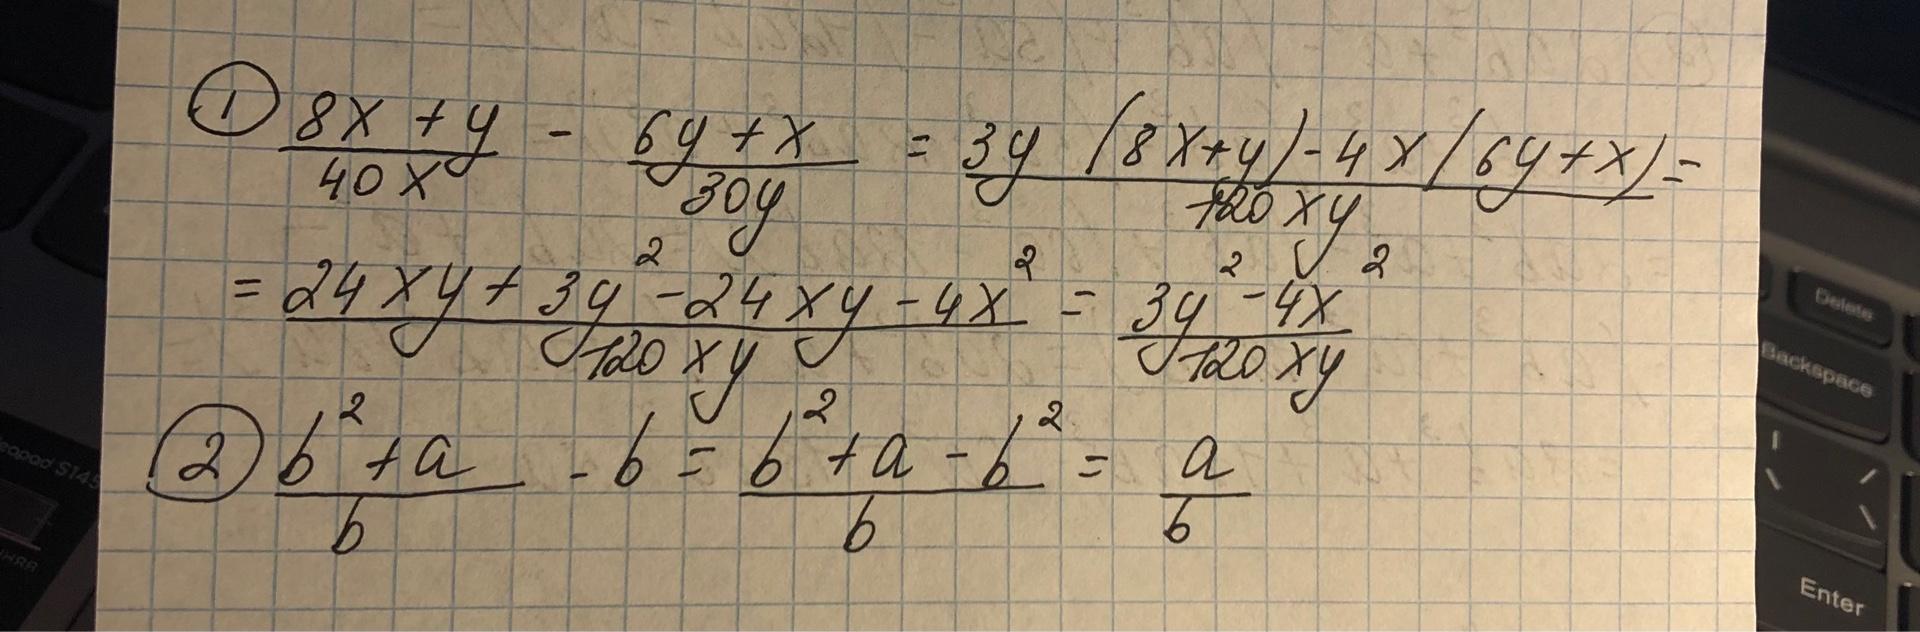 ① (8x + y)/(40x) - (6y + x)/(30y) = (3y (8x+y) - 4x (6y+x))/(120xy) =
= (24xy + 3y² - 24xy - 4x²)/(120xy) = (3y² - 4x²)/(120xy)
② (b² + a)/b - b = (b² + a - b²)/b = a/b
Delete
Backspace
Enter